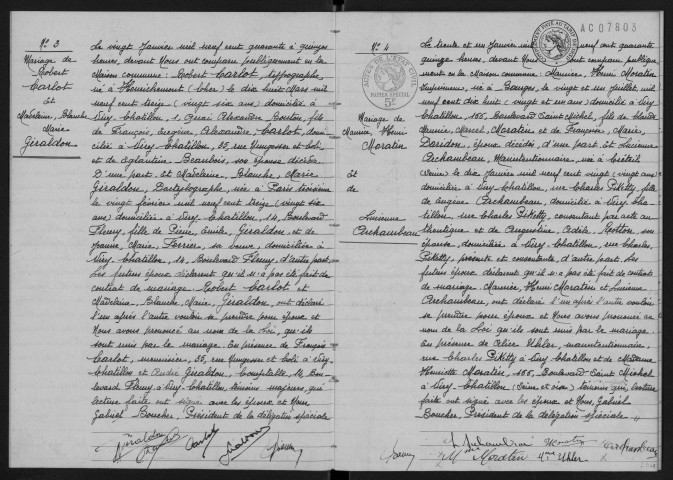 No 3
Mariage de
Robert
Carlot
Et
Madeleine, Blanche
Marie
Géraldon
Le vingt Janvier mil neuf cent quarante à quinze
heures, devant Nous ont comparu publiquement en la
Maison commune: Robert Carlot, typographe,
né à (Cher) le dix huit Mars mil
neuf cent treize (vingt six ans) domicilié à
Viry-Châtillon, 1, Quai Alexandre fils
de François, Alexandre, Carlot, domi
cilié à Viry-Châtillon, 35, rue Nungesser et Coli
et de Eglantine son épouse décédée
D'une part. Et Madeleine, Blanche, Marie
Géraldon, Dactylographe, née à Paris troisième
le vingt février mil neuf cent treize (vingt six
ans) domiciliée à Viry-Châtillon, 14, Boulevard
Fleury, fille de Pierre, Emile, Géraldon et de
Jeanne, Marie, Perrier, sa veuve, domiciliée à
Viry-Châtillon, 14, Boulevard Fleury d'autre part.
Les futurs époux déclarent qu'il n'a pas été fait de
contrat de mariage. Robert Carlot et
Madeleine, Blanche, Marie, Géraldon, ont déclaré
l'un après l'autre vouloir se prendre pour époux et
Nous avons prononcé au nom de la Loi, qu'ils
sont unis par le mariage. En présence de François
Carlot, menuisier, 35, rue Nungesser et Coli à Viry-
Châtillon et André Géraldon, Comptable, 14, Bou-
levard Fleury à Viry-Châtillon, témoins majeurs, qui
lecture faite ont signé avec les époux et Nous,
Gabriel Boucher, Président de la délégation spéciale
Géraldon Carlot
AC07803
No 4
Mariage de
Maurice, Henri
Moratin
Et
de
Lucienne
Archambeau
ACTES DE L'ETAT CIVIL
PAPIER SPECIAL
Le trente et un Janvier mil neuf cent quarante
quinze heures, devant Nous ont comparu publique
ment en la Maison commune: Maurice, Henri Moratin
Imprimeur, né à Bourges, le vingt et un Juillet, mil
neuf cent dix huit (vingt et un ans) domicilié à Viry
Châtillon, 155, Boulevard Saint Michel, fils de
Maurice, Marcel, Moratin et de Françoise, Marie,
époux décédés, d'une part. Et Lucienne
Archambeau, Manutentionnaire, née à Créteil
Seine) le dix Janvier mil neuf cent vingt (vingt ans)
domiciliée à Viry-Châtillon, rue Charles Piketty, fille
de Eugène Archambeau, domicilié à Viry-Châ
tillon, rue Charles Piketty, consentant par acte au
thentique et de Augustine, Adèle, son
épouse, domiciliée à Viry-Châtillon, rue Charles,
Piketty, présente et consentante, d'autre part. Les
futurs époux déclarent qu'il n'a pas été fait de contrat
de mariage. Maurice, Henri Moratin et Lucienne
Archambeau, ont déclaré l'un après l'autre vouloir
se prendre pour époux et Nous avons prononcé au
nom de la Loi qu'ils sont unis par le mariage
En présence de Uhler, manutentionnaire,
rue Charles Piketty à Viry-Châtillon et de Madame
Henriette Moratin, 155, Boulevard Saint Michel
à Viry-Châtillon (Seine et Oise) témoins qui, lecture
faite ont signé avec les époux et Nous, Gabriel
Boucher, Président de la délégation spéciale
Moratin Uhler